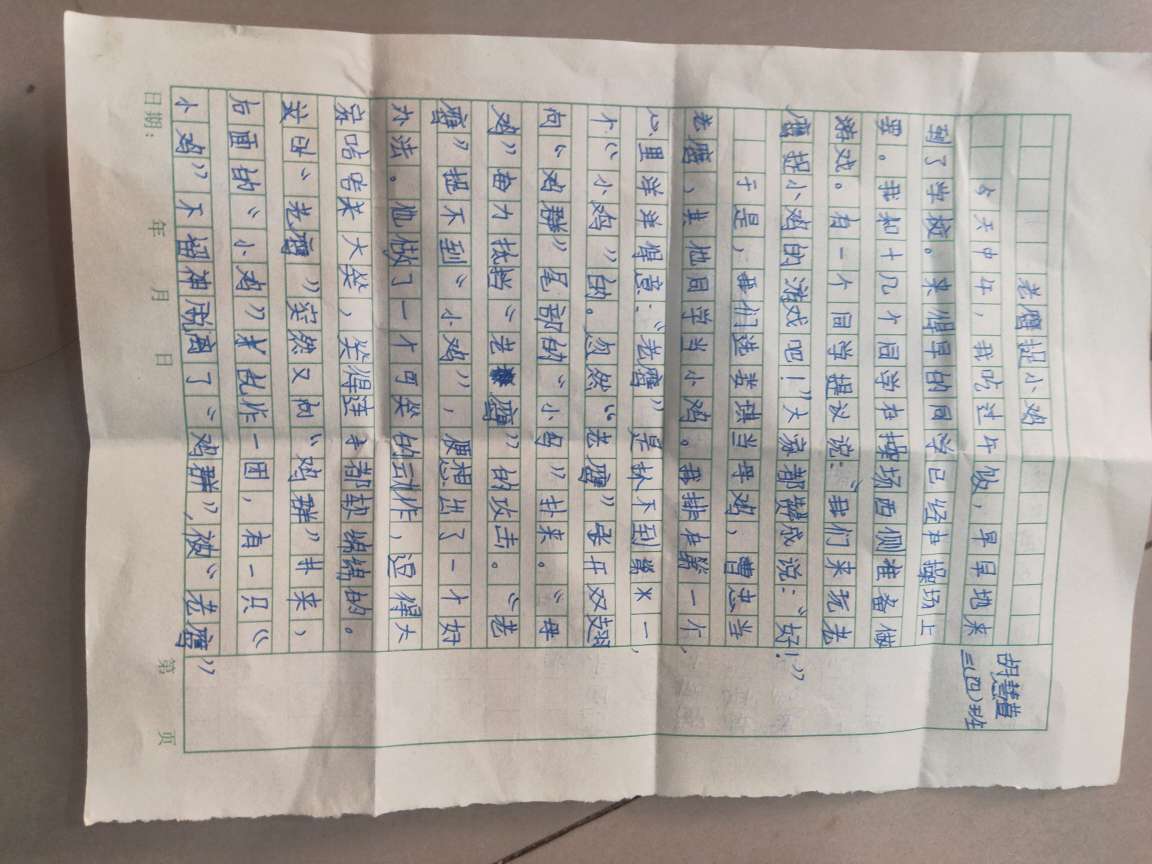 老鹰捉小鸡
胡慧萱
三(四)班
今天中午，我吃过午饭，早早地来
到了学校。来得早的同学已经在操场上
耍。我和十几个同学在操场西侧准备做
游戏。有一个同学提议说：“我们来玩老
鹰捉小鸡的游戏吧！”大家都赞成说：“好！”
于是，我们选娄琪当母鸡，曹忠当
老鹰，其他同学当小鸡。我排在第一个，
心里洋洋得意：“老鹰”是抓不到第一
个“小鸡”的。忽然“老鹰”张开双翅，
向“鸡群”尾部的“小鸡”扑来。“母
鸡”奋力抵挡“老鹰”的攻击。“老
鹰”捉不到“小鸡”，便想出了一个好
办法。他做了一个可笑的动作，逗得大
家哈哈大笑，笑得连手都软绵绵的。
这时“老鹰”突然又向“鸡群”扑来，
后面的“小鸡”乱作一团，有一只“
小鸡”不留神脱离了“鸡群”，被“老鹰”
日期： 年 月 日 第 页